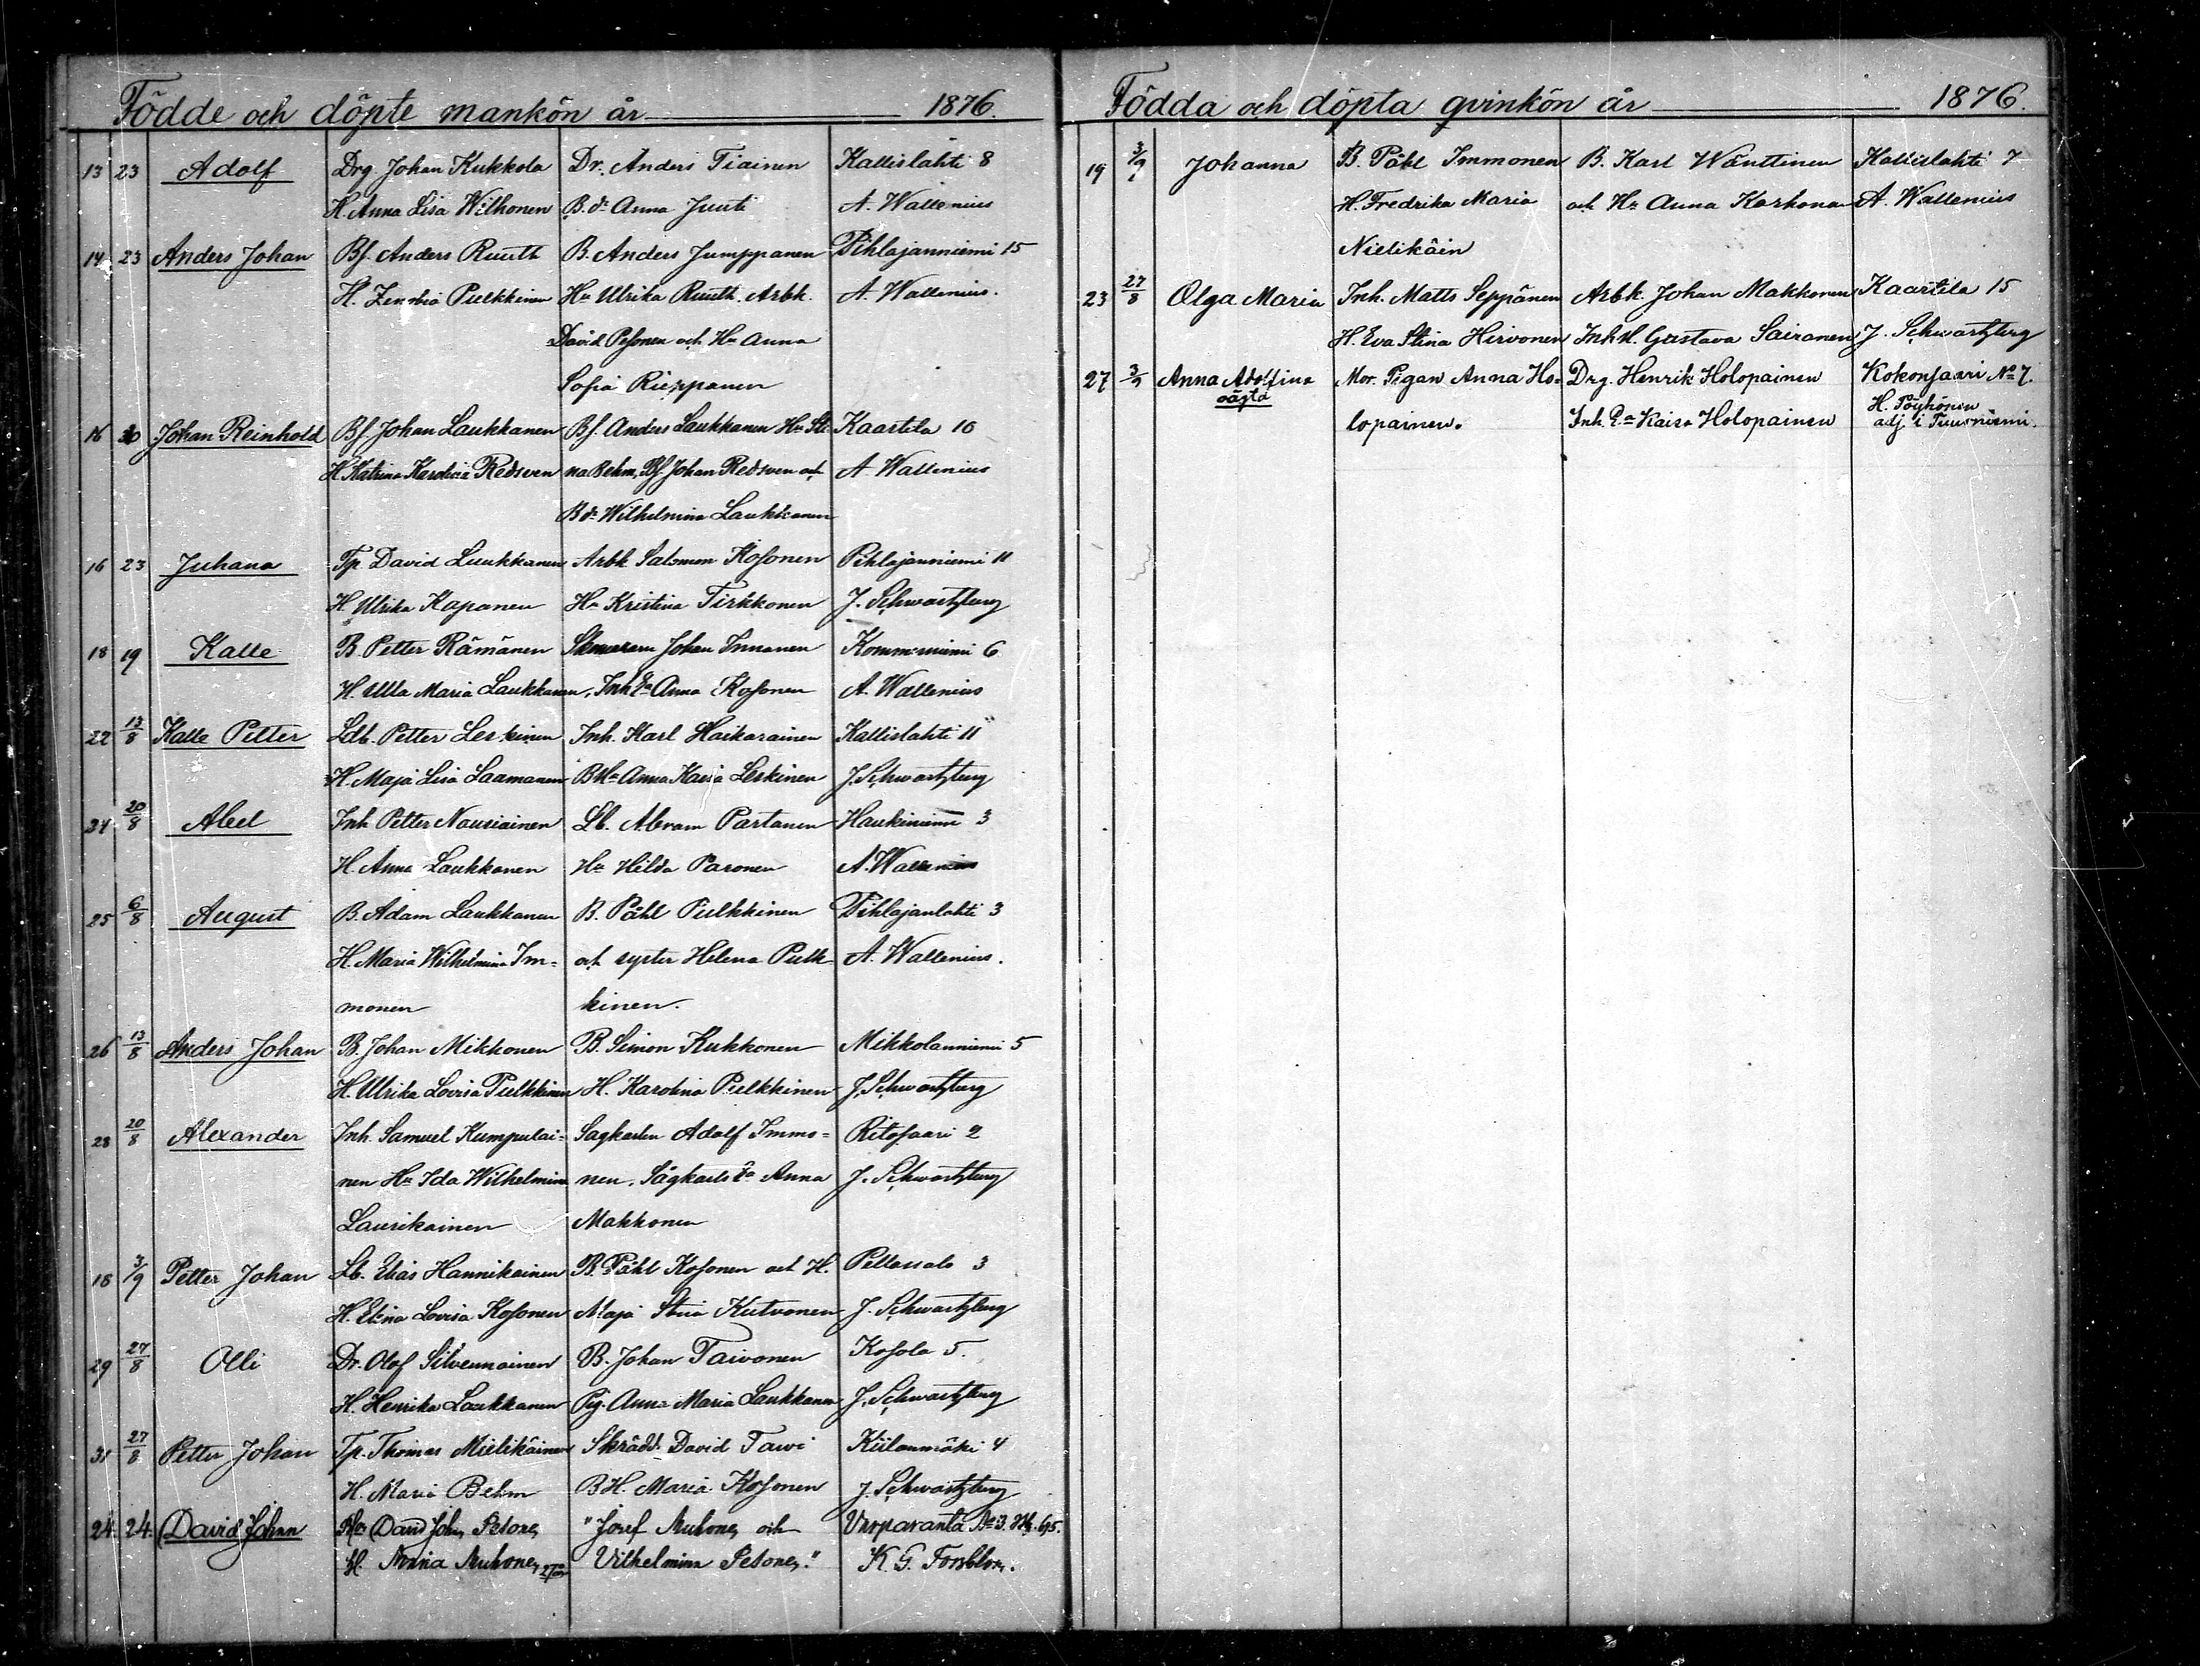 Födde och döpte mankön år 1876.
13 23 Adolf Drg. Johan Kukkola Dr. Anders Tiainen Kallislahti 8
H. Anna Lisa Wilhonen B.dr Anna Juuti A. Wallenius
14 23 Anders Johan Bf. Anders Ruuth B. Anders Jumppanen Pihlajanniemi 15
H. Zenobia Pulkkinen Hu Ulrika Ruuth. Arbk. A. Wallenius.
David Pesonen och Hu Anna
Sofia Rieppanen
16 30 Johan Reinhold Bf. Johan Laukkanen Bf. Anders Laukkanen Hu Sti- Kaartila 10
H. Katrina Karolina Redsven na Behm, Bf Johan Redsven och A. Wallenius
B.dr Wilhelmina Laukkanen
16 23 Juhana Tp. David Luukkanen Arbk. Salomon Kosonen Pihlajanniemi 11
H. Ulrika Kapanen Hu Kristina Tirkkonen J. Schwartzberg
18 19 Kalle B. Petter Rämänen Johan Innanen Kommerniemi 6
H. Ulla Maria Laukkanen, Inh. Anna Kosonen A. Wallenius
22 13/8 Kalle Petter Ldb. Petter Leskinen Inh. Karl Haikarainen Kallislahti 11
H. Maja Lisa Saamanen BHu Anna Kaisa Leskinen J. Schwartzberg
24 20/8 Abel Inh Petter Nousiainen Lb. Abram Partanen Haukiniemi 3
H. Anna Laukkanen Hu Hilda Paronen A. Wallenius
25 6/8 August B. Adam Laukkanen B. Påhl Pulkkinen Pihlajanlahti 3
H. Maria Wilhelmina Im- och syster Helena Pulk- A. Wallenius.
monen kinen.
26 13/8 Anders Johan B. Johan Mikkonen B. Simon Kukkonen Mikkolanniemi 5
H. Ulrika Lovisa Pulkkinen H. Karolina Pulkkinen J. Schwartzberg
28 20/8 Alexander Inh. Samuel Kumpulai- Sagkarlen Adolf Immo- Ritosaari 2
nen Hu Ida Wilhelmina nen, Sågkarls Anna J. Schwartzberg
Laurikainen Makkonen
18 3/9 Petter Johan Lb. Elias Hannikainen B. Påhl Kosonen och H. Pellossalo 3
H. Elina Lovisa Kosonen Maja Stina Kutvonen J. Schwartzberg
29 27/8 Olli Dr. Olof Silvennoinen B. Johan Taivonen Kosola 5.
H. Henrika Laukkanen Pig. Anna Maria Laukkanen J. Schwartzberg
31 27/8 Petter Johan Tp. Thomas Mielikäinen Skrädd. David Tawi Kiilanmäki 4
H. Maria Behm BH. Maria Kosonen J. Schwartzberg
24. 24. David Johan David Joh. Pesonen "Josef Muhonen och Vuoparanta No 3.
H. Muhonen Vilhelmina Pesonen." K. G. Forsblom.
Födda och döpta qvinkön år 1876.
19 3/9 Johanna B. Påhl Immonen B. Karl Wänttinen Kallislahti 7
H. Fredrika Maria och Hu Anna Karhonen A. Wallenius
Mielikäin
23 27/8 Olga Maria Inh. Matts Seppänen Arbk. Johan Makkonen Kaartila 15
H. Eva Stina Hirvonen Inh H. Gustava Sairanen J. Schwartzberg
27 3/9 Anna Adolfina Mor. Pigan Anna Ho- Drg. Henrik Holopainen Kokonsaari No 7.
oägta lopainen. Inh. Kaisa Holopainen H. Pöyhönen
adj. i Tuusniemi.